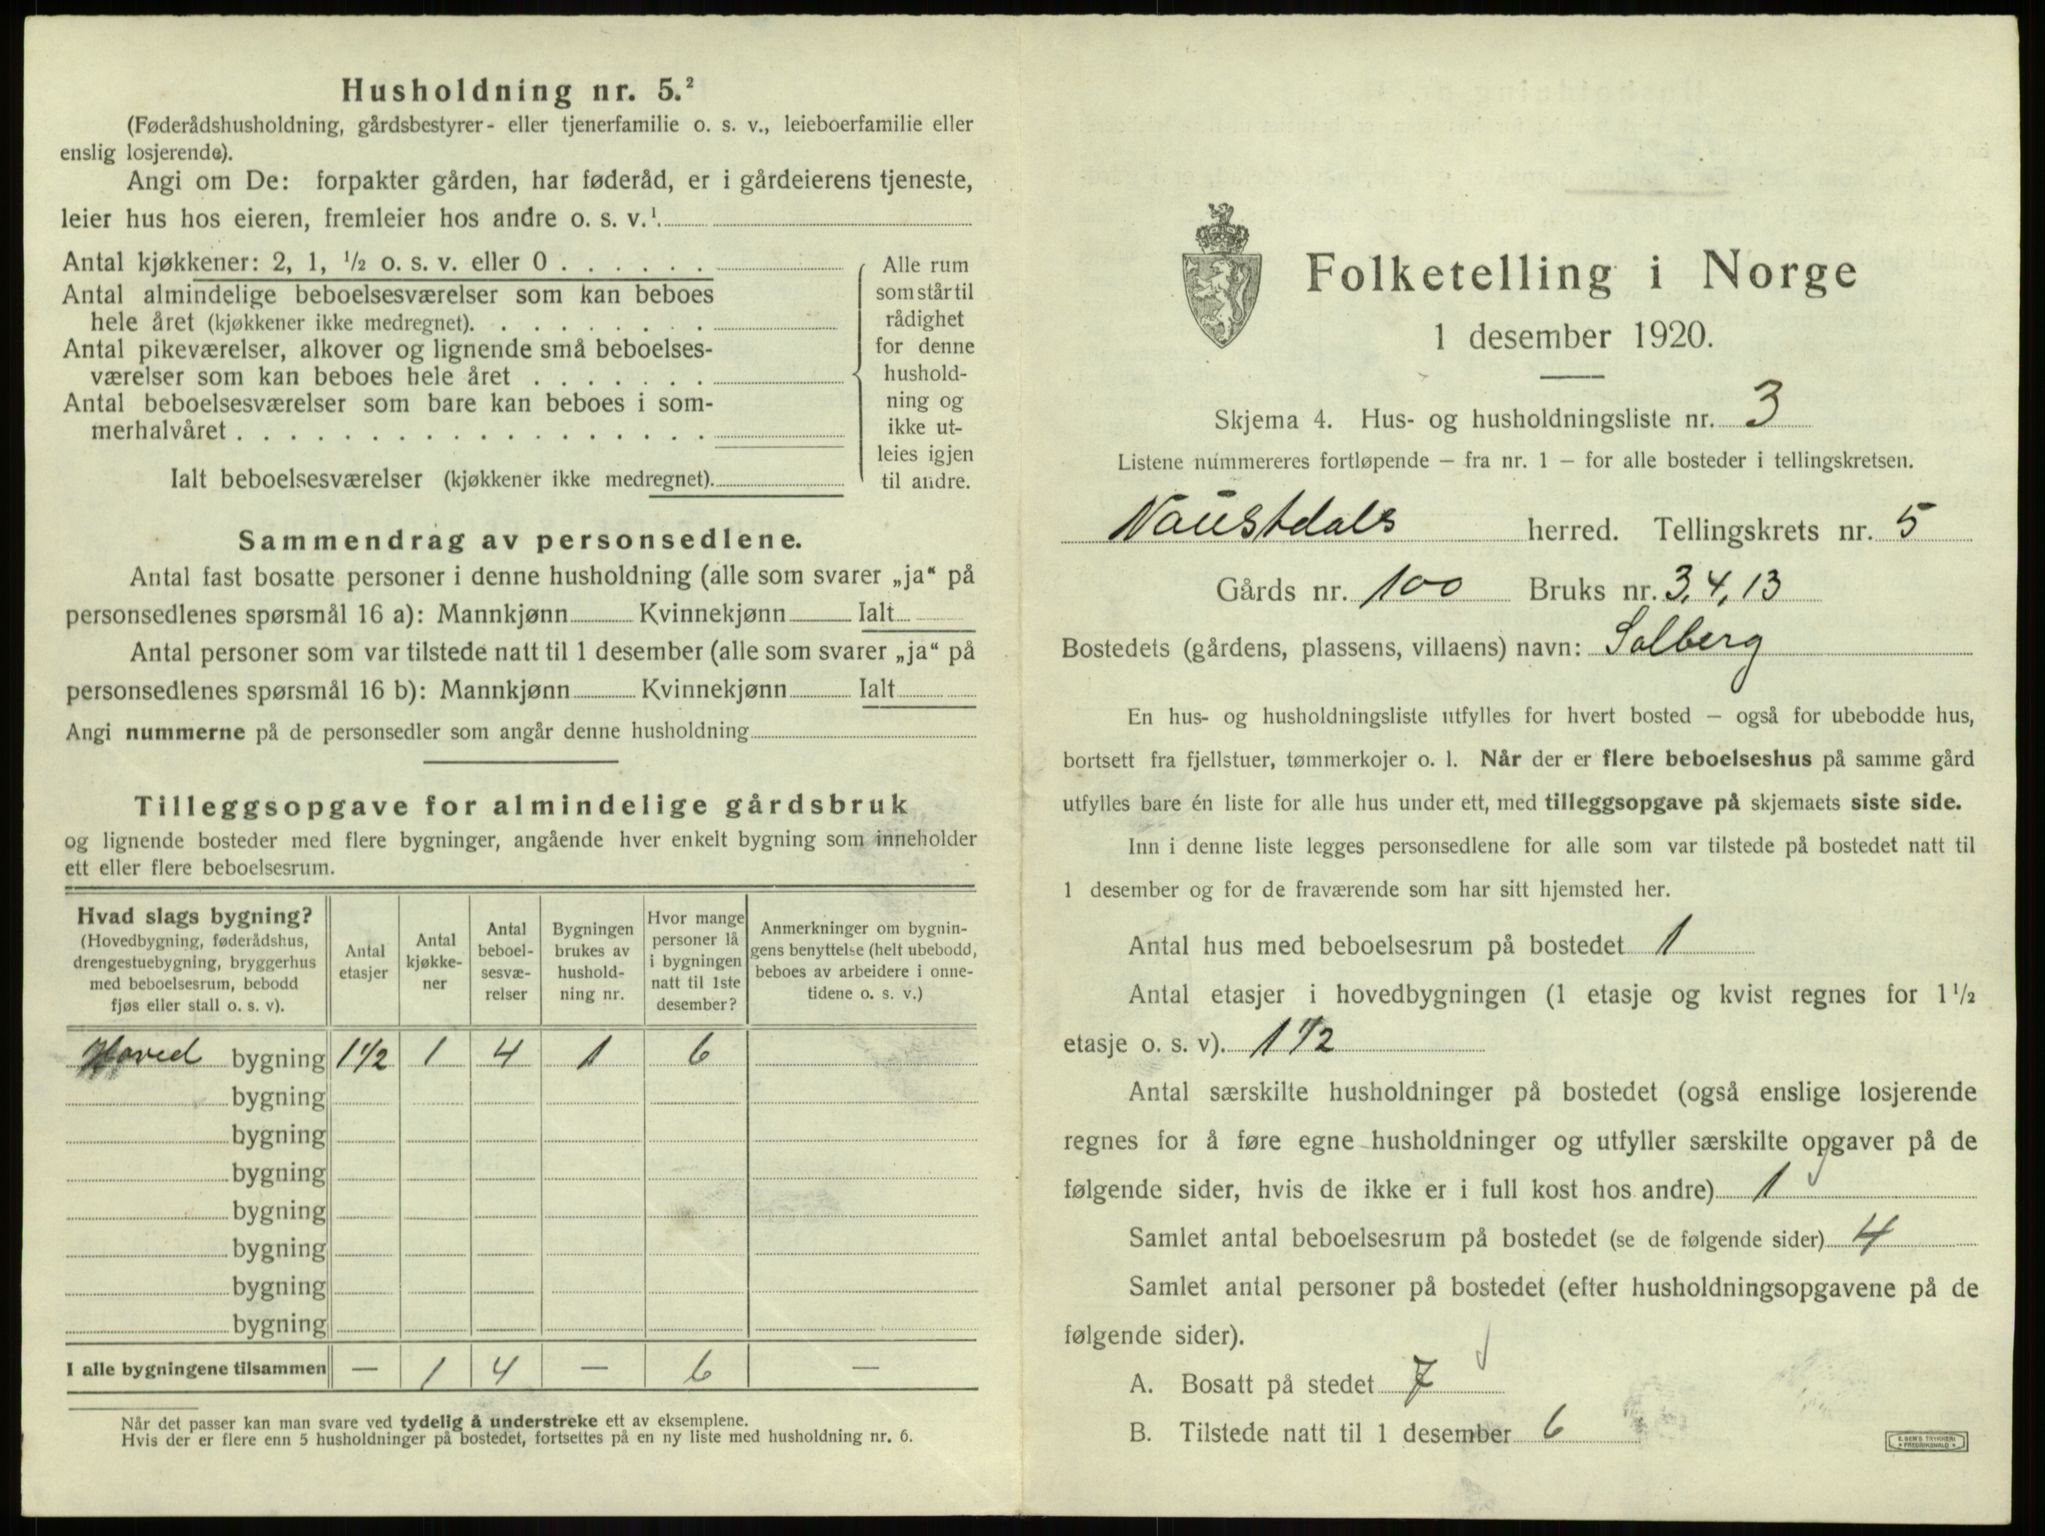 Husholdning nr. 5.²
(Føderådshusholdning, gårdsbestyrer- eller tjenerfamilie o. s. v., leieboerfamilie eller
enslig losjerende).
Angi om De: forpakter gården, har føderåd, er i gårdeierens tjeneste,
leier hus hos eieren, fremleier hos andre o. s. v.¹
Antal kjøkkener: 2, 1, ½ o. s. v. eller 0 . . . . . .
Antal almindelige beboelsesværelser som kan beboes
hele året (kjøkkener ikke medregnet). . . . . . . . .
Antal pikeværelser, alkover og lignende små beboelses-
værelser som kan beboes hele året . . . . . . .
Antal beboelsesværelser som bare kan beboes i som-
merhalvåret . . . . . . . . . . . . . . . . . .
Ialt beboelsesværelser (kjøkkener ikke medregnet).
Alle rum
som står til
rådighet
for denne
hushold-
ning og
ikke ut-
leies igjen
til andre.
Sammendrag av personsedlene.
Antal fast bosatte personer i denne husholdning (alle som svarer „ja“ på
personsedlenes spørsmål 16 a): Mannkjønn Kvinnekjønn Ialt
Antal personer som var tilstede natt til 1 desember (alle som svarer „ja“ på
personsedlenes spørsmål 16 b): Mannkjønn Kvinnekjønn Ialt
Angi nummerne på de personsedler som angår denne husholdning
Tilleggsopgave for almindelige gårdsbruk
og lignende bosteder med flere bygninger, angående hver enkelt bygning som inneholder
ett eller flere beboelsesrum.
Hvad slags bygning?
(Hovedbygning, føderådshus,
drengestuebygning, bryggerhus
med beboelsesrum, bebodd
fjøs eller stall o. s. v).
Antal
etasjer
Antal
kjøkke-
ner
Antal
beboel-
sesvæ-
relser
Bygningen
brukes av
hushold-
ning nr.
Hvor mange
personer lå
i bygningen
natt til 1ste
desember?
Anmerkninger om bygnin-
gens benyttelse (helt ubebodd,
beboes av arbeidere i onne-
tidene o. s. v.)
Hoved bygning 1½ 1 4 1 6
bygning
bygning
bygning
bygning
bygning
bygning
bygning
I alle bygningene tilsammen — 1 4 — 6 —
Når det passer kan man svare ved tydelig å understreke ett av eksemplene.
Hvis der er flere enn 5 husholdninger på bostedet, fortsettes på en ny liste med husholdning nr. 6.
Folketelling i Norge
1 desember 1920.
Skjema 4. Hus- og husholdningsliste nr. 3
Listene nummereres fortløpende — fra nr. 1 — for alle bosteder i tellingskretsen.
Naustdals herred. Tellingskrets nr. 5
Gårds nr. 100 Bruks nr. 3, 4, 13
Bostedets (gårdens, plassens, villaens) navn: Solberg
En hus- og husholdningsliste utfylles for hvert bosted — også for ubebodde hus,
bortsett fra fjellstuer, tømmerkojer o. l. Når der er flere beboelseshus på samme gård
utfylles bare én liste for alle hus under ett, med tilleggsopgave på skjemaets siste side.
Inn i denne liste legges personsedlene for alle som var tilstede på bostedet natt til
1 desember og for de fraværende som har sitt hjemsted her.
Antal hus med beboelsesrum på bostedet 1
Antal etasjer i hovedbygningen (1 etasje og kvist regnes for 1½
etasje o. s. v). 1½
Antal særskilte husholdninger på bostedet (også enslige losjerende
regnes for å føre egne husholdninger og utfyller særskilte opgaver på de
følgende sider, hvis de ikke er i full kost hos andre) 1
Samlet antal beboelsesrum på bostedet (se de følgende sider) 4
Samlet antal personer på bostedet (efter husholdningsopgavene på de
følgende sider).
A. Bosatt på stedet 7
B. Tilstede natt til 1 desember 6
E. SEM'S TRYKKERI
FREDRIKSHALD